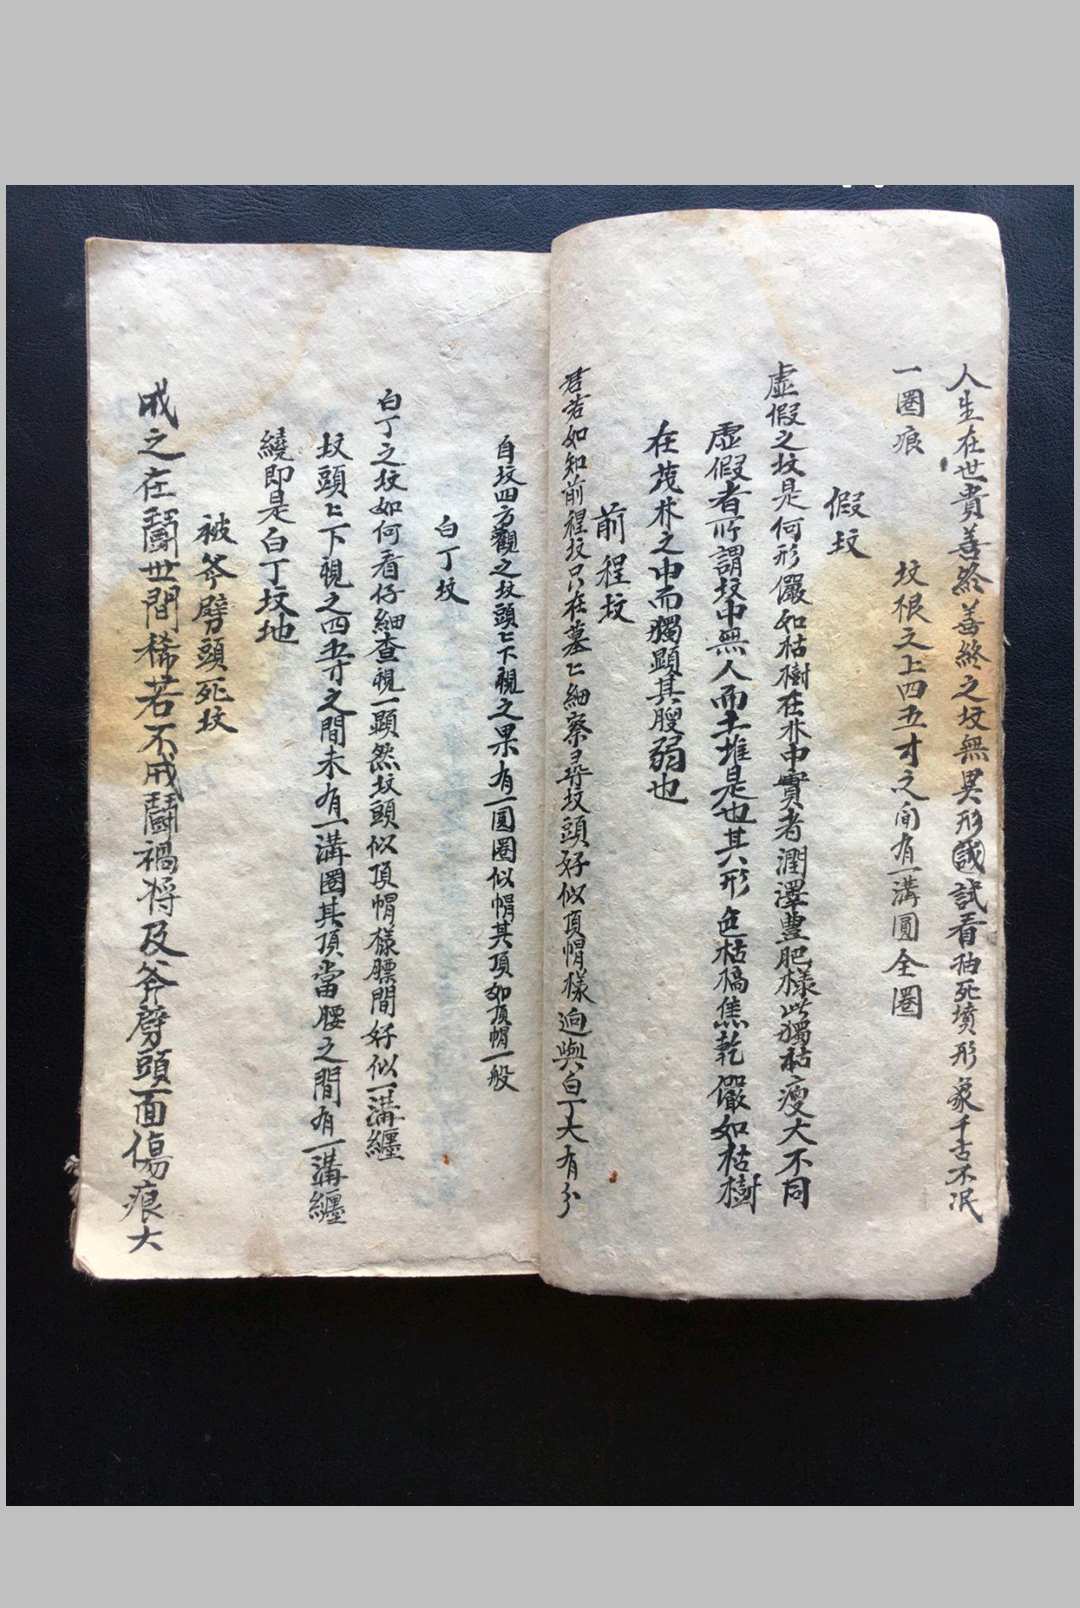 人生在世貴善終善終之坟無異形試看抽死墳形象千古不泯
坟根之上四五寸之间有一溝圓全圈
一圈痕
假坟
虛假之坟是何形儼如枯樹在林中實者潤澤豊肥樣此獨枯瘦大不同
虛假者所謂坟中無人而土堆是也其形色枯槁焦乾儼如枯樹
在茂林之中而獨顕其瘦弱也
前程坟
君若如知前程坟只在墓上細察尋坟頭好似頂帽樣迥與白丁大有分
自坟四方觀之坟頭上下視之果有一圓圈似帽其頂如頂帽一般
白丁坟
白丁之坟如何看仔細查視一顕然坟頭似頂帽樣腰間好似一溝纏
坟頭上下視之四五寸之間未有一溝圈其頂當腰之間有一溝纏
繞即是白丁坟地
被斧劈頭死坟
戒之在鬪世間稀若不戒鬪禍将及斧劈頭面傷痕大